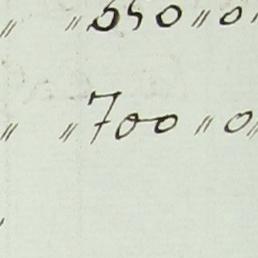 〃 〃 550 〃 0
〃 〃 700 〃 0